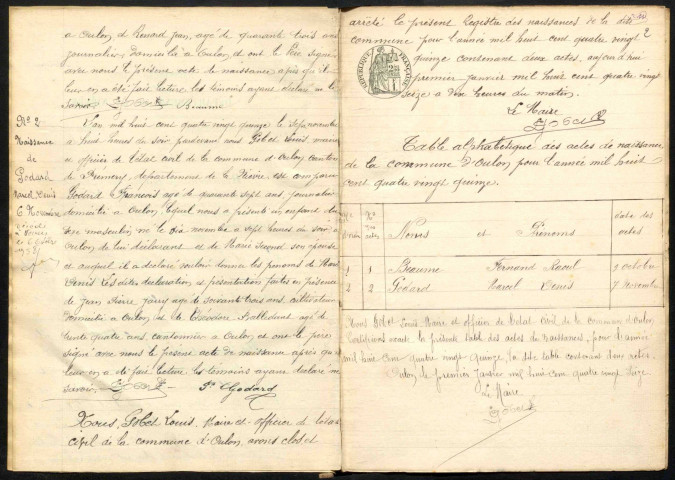 a Oulon, et Renard Jean, agé de quarante trois ans
journalier domicilié à Oulon, et ont le Père signé
avec nous le présent acte de naissance après qu'il
leur en a été faite lecture les témoins ayant déclaré ne le
savoir. Beaume
N° 2
Naissance
de
Godard
Marcel Denis
6 Novembre
L'an mil huit cent quatre vingt quinze le sept novembre
à huit heures du soir pardevant nous Gobet Louis, maire
et officier de l'état civil de la commune d'Oulon, canton
de Prémery, département de la Nièvre est comparu
Godard François agé de quarante sept ans, journalier
domicilié à Oulon, lequel nous a présenté un enfant du
sexe masculin, né le six novembre à sept heures du soir à
Oulon, de lui déclarant et de Marie son épouse
et auquel il a déclaré vouloir donner les prénoms de Marcel
Denis. Les dites déclaration et présentation faites en présence
de Jean Pierre Jarry agé de soixante trois ans, cultivateur
domicilié à Oulon, et de Théodore agé de
trente quatre ans, cantonnier à Oulon, et ont le père
signé avec nous le présent acte de naissance après qu'il
leur en a été faite lecture les témoins ayant déclaré ne
savoir. Gobet Godard
Nous, Gobet Louis, Maire et officier de l'état
civil de la commune d'Oulon, avons clos et
arrêté le présent Registre des naissances de la dite
commune pour l'année mil huit cent quatre vingt
quinze contenant deux actes, aujourd'hui
premier janvier mil huit cent quatre vingt
seize à dix heures du matin.
Le Maire
Gobet
REPUBLIQUE FRANÇAISE
Table alphabétique des actes de naissance
de la commune d'Oulon pour l'année mil huit
cent quatre vingt quinze.
N° des actes Noms et Prénoms date des actes
1 1 Beaume Fernand Raoul 2 octobre
2 2 Godard Marcel Denis 7 novembre
Nous Gobet Louis Maire et officier de l'état civil de la commune d'Oulon
certifions la présente table des actes de naissances, pour l'année
mil huit cent quatre vingt quinze, la dite table contenant deux actes.
Oulon le premier Janvier mil huit cent quatre vingt seize
Le Maire
Gobet